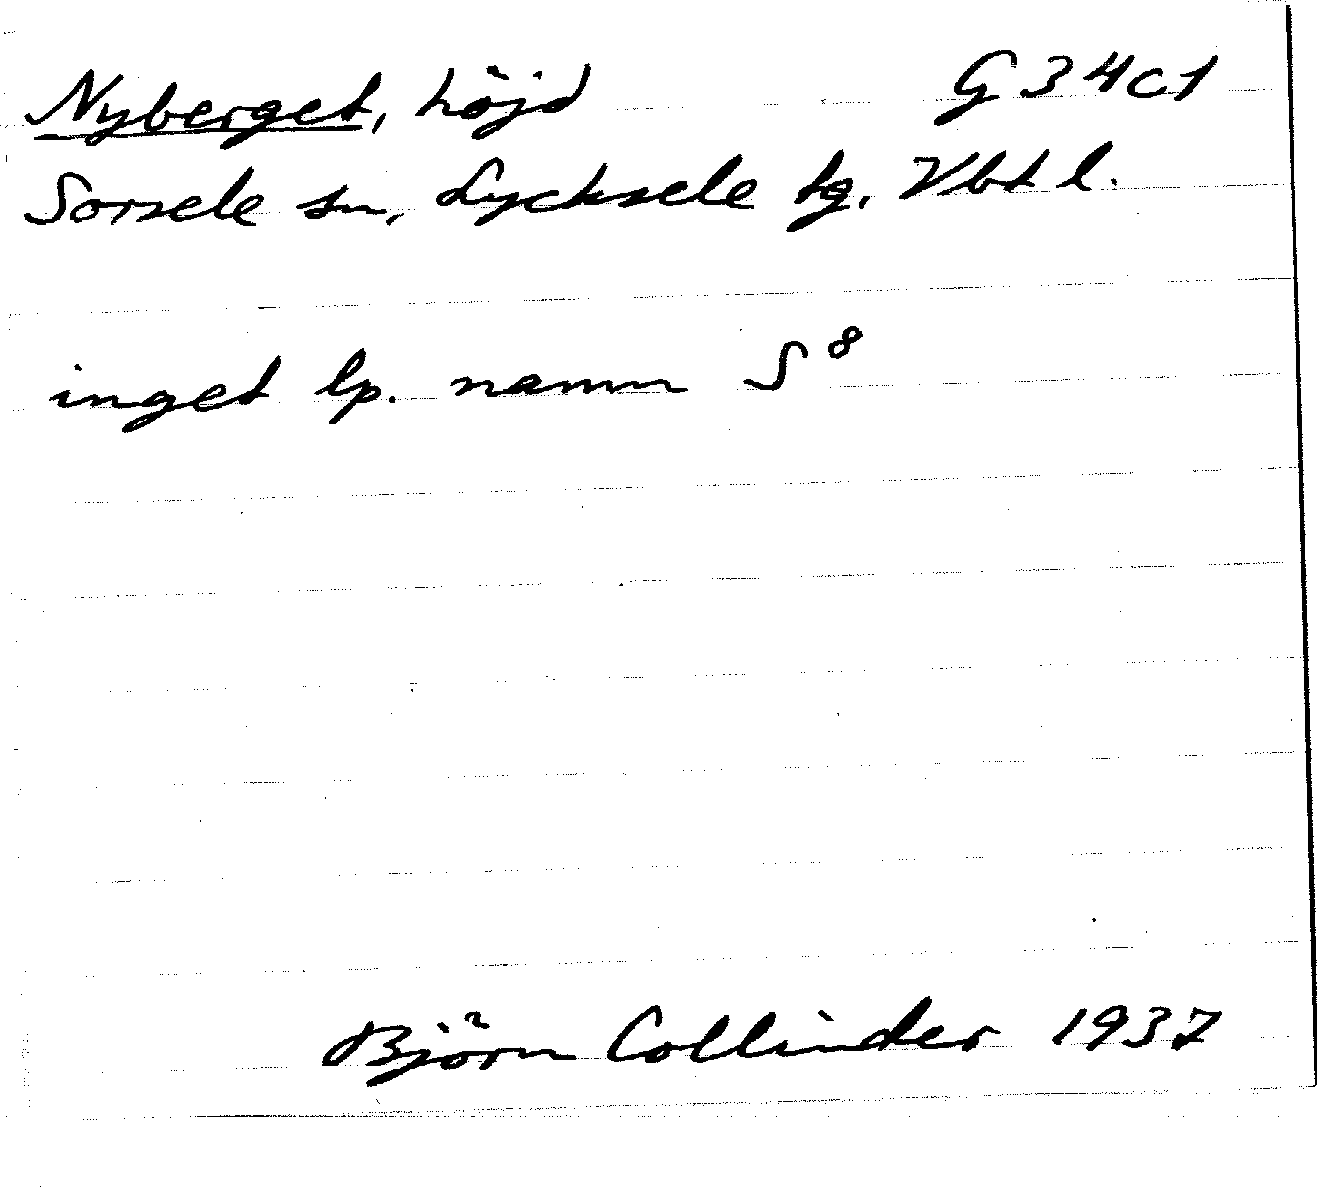 Nyberget, höjd G 34 c 1
Sorsele sn, Lycksele lg, Vbt l.
inget lp. namn S 8
Björn Collinder 1937